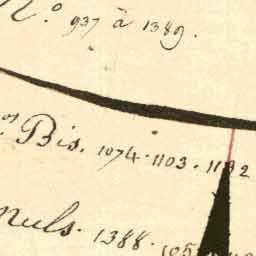 N.º 937 à 1389.
os Bis. 1074. 1103. 1192
nuls. 1388.